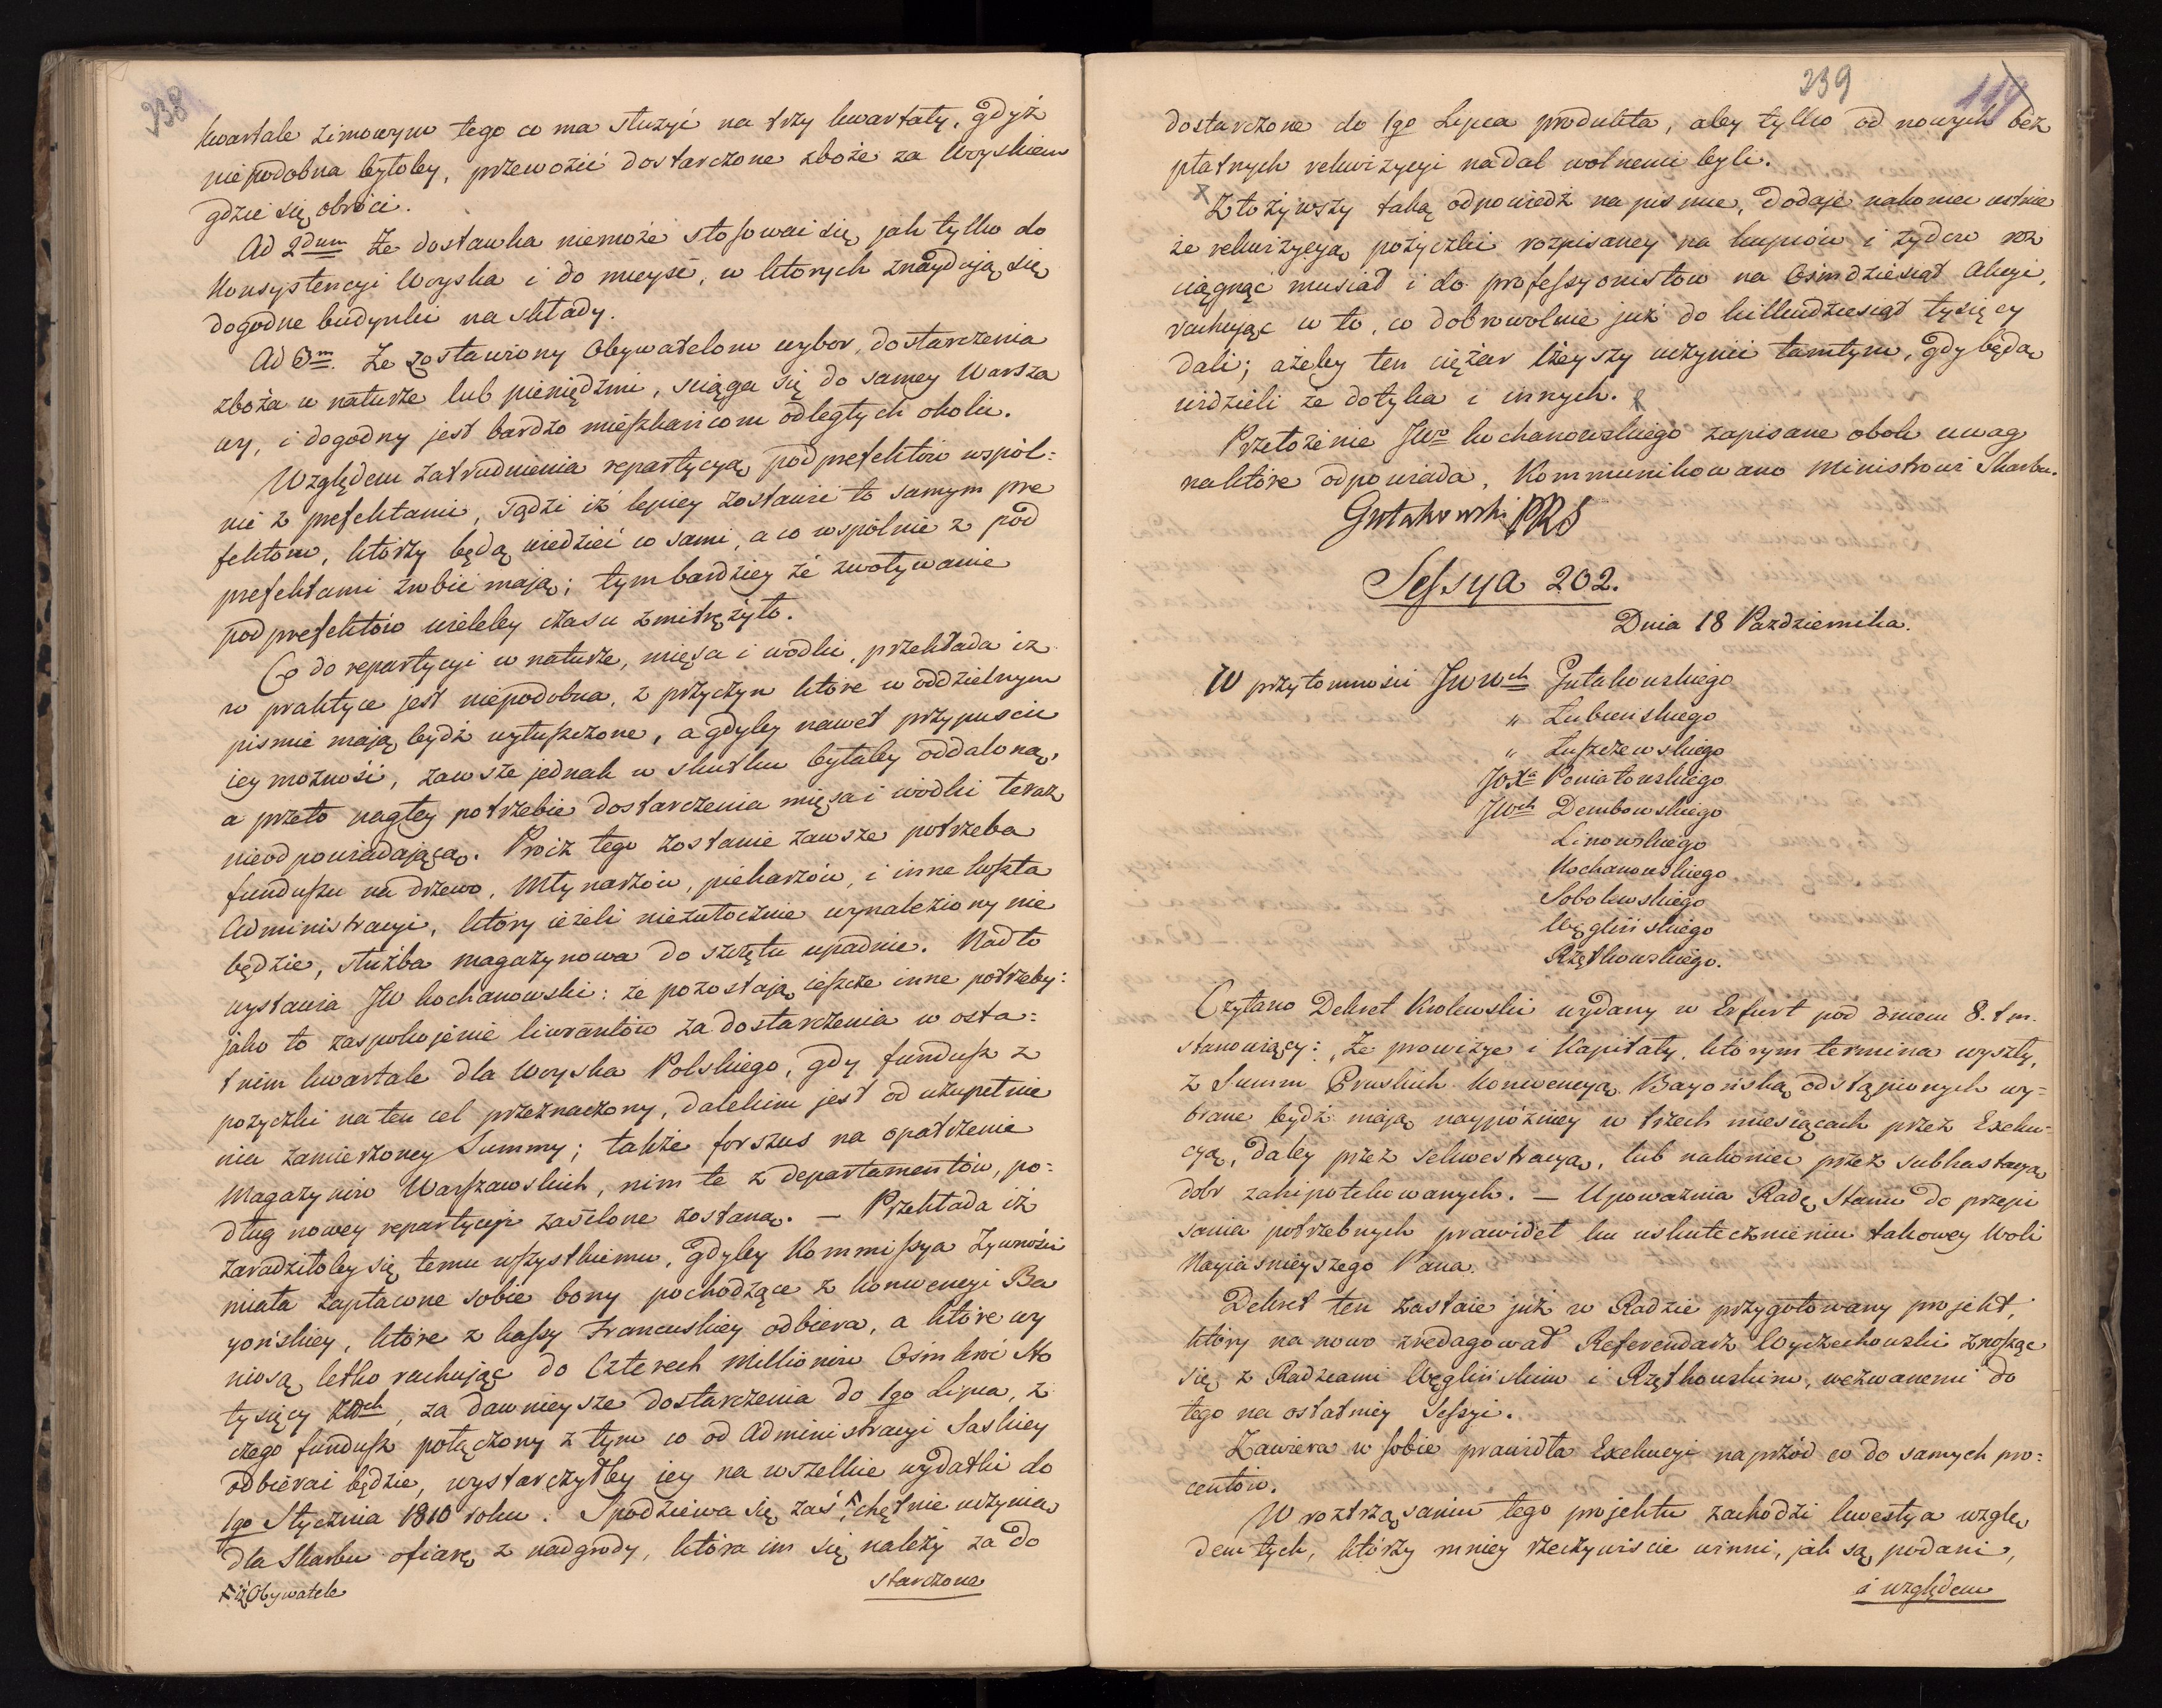 238
kwartale zimowym tego co ma służyć na trzy kwartały, gdyż
niepodobna byłoby, przewozić dostarczone zboże za Woyskiem
gdzie się obróci.
Ad 2dum Że dostawka niemoże stosowai się jak tylko do
Konsystencyi Woyska i do mieysć, w ktorych znaydują się
dogodne budynki na składy.
Ad 3m. Że zostawiony Obywatelom wybor, dostarczenia
zboża w naturze lub pieniędzmi, sciąga się do samey Warsza
wy, i dogodny jest bardzo mieszkańcom odległych okolic.
Względem zatrudnienia repartycyą podprefektów wspól:
nie z prefektami, sądzi iż lepiey zostawić to samym pre
fektom, którzy będą wiedzieć co sami, a co wspólnie z pod
prefektami zrobić mają; tymbardziey że zwoływanie
podprefektów wieleby czasu zmitrężyło.
Co do repartycyi w naturze, mięsa i wodki, przekłada iż
w praktyce jest niepodobna, z przyczyn które w oddzielnym
pismie mają bydź wyłuszczone, a gdyby nawet przypuscić
iey możność, zawsze jednak w skutku byłaby oddaloną,
a przeto nagłey potrzebie dostarczenia mięsa i wódki teraz
nieodpowiadającą. Prócz tego zostanie zawsze potrzeba
funduszu na drzewo, Młynarzów, piekarzów, i inne koszta
Administracyi, który ieżeli niezwłocznie wynaleziony nie
będzie, służba magazynowa do szczętu upadnie. Nadto
wystawia JW Kochanowski: że pozostają ieszcze inne potrzeby:
jako to zaspokojenie liwerantów za dostarczenia w osta:
tnim kwartale dla Woyska Polskiego, gdy fundusz z
pożyczki na ten cel przeznaczony, dalekim jest od uzupełnie
nia zamierzoney Summy; także forszus na opatrzenie
Magazynów Warszawskich, nim te z departamentów, po:
dług nowey repartycyi zasilone zostaną. — Przekłada iż
zaradziłoby się temu wszystkiemu, gdyby Kommissya Żywności
miała zapłacone sobie bony pochodzące z konwencyi Ba
yońskiey, które z kassy Francuskiey odbiera, a które wy
niosą letko rachując do Czterech Millionów Osmkroć Sto
tysięcy złłch, za dawnieysze dostarczenia do 1go Lipca, z
czego fundusz połączony z tym co od Administracyi Saskiey
odbierać będzie, wystarczyłby iey na wszelkie wydatki do
1go Stycznia 1810 roku. Spodziewa się zaś, chętnie uczynią
dla Skarbu ofiarę z nadgrody, która im się należy za do
iż Obywatele
starczone
239
119
dostarczone do 1go Lipca produkta, aby tylko od nowych bez
płatnych rekwizycyi nadal wolnemi byli.
Złożywszy taką odpowiedź na pismie, dodaje nakoniec ustnie
że rekwizycyą pożyczki rozpisaney na kupców i żydów roz
ciągnąć musiał i do professyonistów na Ośmdziesiąt Akcyi,
rachując w to, co dobrowolnie już do kilkudziesiąt tysięcy
dali; ażeby ten ciężar lżeyszy uczynić tamtym, gdy będą
widzieli że dotyka i innych.
Przełożenie JWo Kochanowskiego zapisane obok uwag
naktóre odpowiada, Kommunikowano Ministrowi Skarbu.
Gutakowski PRS
Sessya 202.
Dnia 18 Pazdziernika.
W przytomności JWWch Gutakowskiego
" Łubieńskiego
" Łuszczewskiego
JOXa Poniatowskiego
JWch Dembowskiego
Linowskiego
Kochanowskiego
Sobolewskiego
Węglińskiego
Rzętkowskiego.
Czytano Dekret Krolewski wydany w Erfurt pod dniem 8. t m.
stanowiący: "Że prowizye i Kapitały, którym termina wyszły,
z Summ Pruskich konwencyą Bayońską odstąpionych wy=
brane bydź mają naypóźniey w trzech miesiącach przez Exeku=
cyą, daley przez sekwestracyą, lub nakoniec przez subhastacyą
dobr zahipotekowanych. — Upoważnia Radę Stanu do przepi
sania potrzebnych prawideł ku uskutecznieniu takowey Woli
Nayiasnieyszego Pana.
Dekret ten zastaie już w Radzie przygotowany projekt,
który na nowo zredagował Referendarz Wyczechowski znosząc
się z Radzcami Węglińskim i Rzętkowskim, wezwanemi do
tego na ostatniey Sessyi.
Zawiera w sobie prawidła Exekucyi naprzód co do samych pro:
centów.
W roztrząsaniu tego projektu zachodzi kwestya wzglę
dem tych, którzy mniey rzeczywiscie winni, jak są podani,
i względem